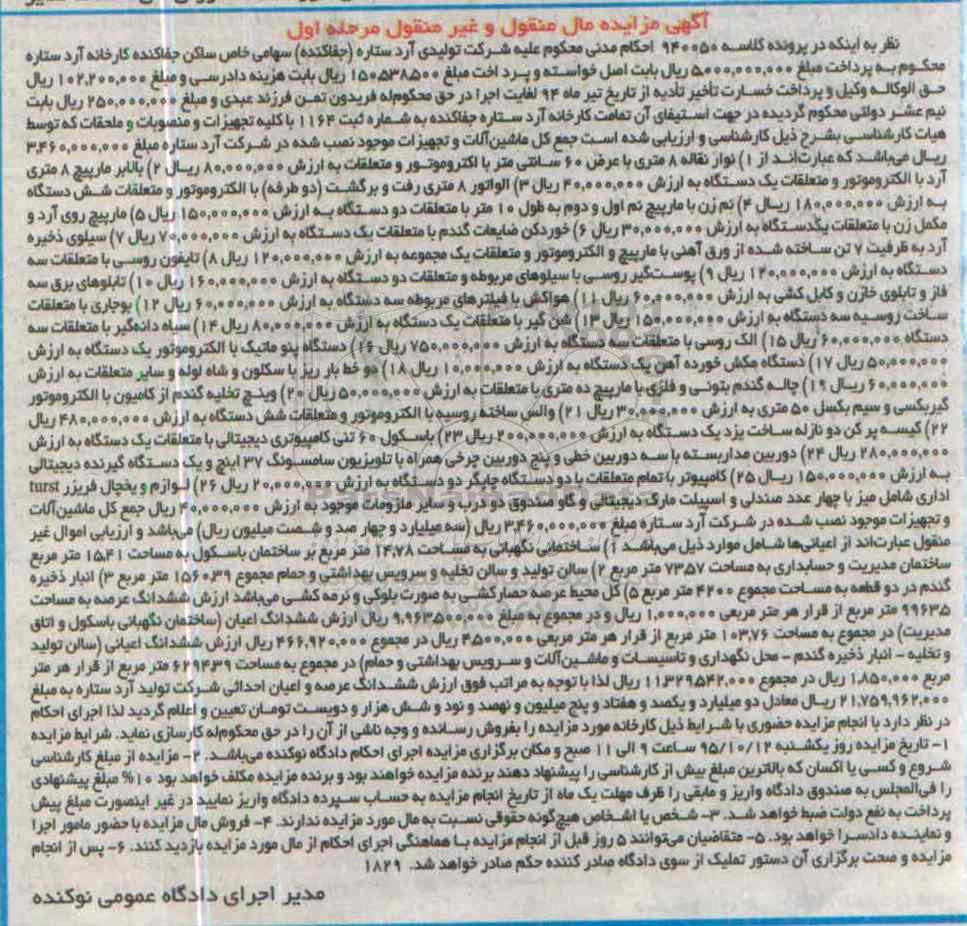 آگهی مزایده مال منقول و غیر منقول مرحله اول
نظر به اینکه در پرونده کلاسه ۹۴۰۰۵۰ احکام مدنی محکوم علیه شرکت تولیدی آرد ستاره (جفاکنده) سهامی خاص ساکن جفاکنده کارخانه آرد ستاره
محکوم به پرداخت مبلغ ۵,۰۰۰,۰۰۰,۰۰۰ ریال بابت اصل خواسته و پرداخت مبلغ ۱۵۰,۵۳۸,۵۰۰ ریال بابت هزینه دادرسی و مبلغ ۱۰۲,۲۰۰,۰۰۰ ریال
حق الوکاله وکیل و پرداخت خسارت تأخیر تأدیه از تاریخ تیر ماه ۹۴ لغایت اجرا در حق محکوم‌له فریدون تمن فرزند عبدی و مبلغ ۲۵۰,۰۰۰,۰۰۰ ریال بابت
نیم عشر دولتی محکوم گردیده در جهت استیفای آن تمامت کارخانه آرد ستاره جفاکنده به شماره ثبت ۱۱۶۴ با کلیه تجهیزات و منصوبات و ملحقات که توسط
هیات کارشناسی بشرح ذیل کارشناسی و ارزیابی شده است جمع کل ماشین‌آلات و تجهیزات موجود نصب شده در شرکت آرد ستاره مبلغ ۳,۴۶۰,۰۰۰,۰۰۰
ریال می‌باشد که عبارت‌اند از ۱) نوار نقاله ۸ متری با عرض ۶۰ سانتی متر با الکتروموتور و متعلقات به ارزش ۸۰,۰۰۰,۰۰۰ ریال ۲) بالابر مارپیچ ۸ متری
آرد با الکتروموتور و متعلقات یک دستگاه به ارزش ۴۰,۰۰۰,۰۰۰ ریال ۳) الواتور ۸ متری رفت و برگشت (دو طرفه) با الکتروموتور و متعلقات شش دستگاه
به ارزش ۱۸۰,۰۰۰,۰۰۰ ریال ۴) نم زن با مارپیچ نم اول و دوم به طول ۱۰ متر با متعلقات دو دستگاه به ارزش ۱۵۰,۰۰۰,۰۰۰ ریال ۵) مارپیچ روی آرد و
مکمل زن با متعلقات یکدستگاه به ارزش ۳۰,۰۰۰,۰۰۰ ریال ۶) خوردکن ضایعات گندم با متعلقات یک دستگاه به ارزش ۷۰,۰۰۰,۰۰۰ ریال ۷) سیلوی ذخیره
آرد به ظرفیت ۷ تن ساخته شده از ورق آهنی با مارپیچ و الکتروموتور و متعلقات یک مجموعه به ارزش ۱۲۰,۰۰۰,۰۰۰ ریال ۸) تایفون روسی با متعلقات سه
دستگاه به ارزش ۱۲۰,۰۰۰,۰۰۰ ریال ۹) پوست‌گیر روسی با سیلوهای مربوطه و متعلقات دو دستگاه به ارزش ۱۶۰,۰۰۰,۰۰۰ ریال ۱۰) تابلوهای برق سه
فاز و تابلوی خازن و کابل کشی به ارزش ۶۰,۰۰۰,۰۰۰ ریال ۱۱) هواکش با فیلترهای مربوطه سه دستگاه به ارزش ۶۰,۰۰۰,۰۰۰ ریال ۱۲) بوجاری با متعلقات
ساخت روسیه سه دستگاه به ارزش ۱۵۰,۰۰۰,۰۰۰ ریال ۱۳) شن گیر با متعلقات یک دستگاه به ارزش ۸۰,۰۰۰,۰۰۰ ریال ۱۴) سیاه دانه‌گیر با متعلقات سه
دستگاه ۶۰,۰۰۰,۰۰۰ ریال ۱۵) الک روسی با متعلقات سه دستگاه به ارزش ۷۵۰,۰۰۰,۰۰۰ ریال ۱۶) دستگاه پنوماتیک با الکتروموتور یک دستگاه به ارزش
۵۰,۰۰۰,۰۰۰ ریال ۱۷) دستگاه مکش خورده آهن یک دستگاه به ارزش ۱۰,۰۰۰,۰۰۰ ریال ۱۸) دو خط بار ریز با سکلون و شاه لوله و سایر متعلقات به ارزش
۶۰,۰۰۰,۰۰۰ ریال ۱۹) چاله گندم بتونی و فلزی با مارپیچ ده متری با متعلقات به ارزش ۵۰,۰۰۰,۰۰۰ ریال ۲۰) وینچ تخلیه گندم از کامیون با الکتروموتور
گیربکسی و سیم بکسل ۵۰ متری به ارزش ۳۰,۰۰۰,۰۰۰ ریال ۲۱) والس ساخته روسیه با الکتروموتور و متعلقات شش دستگاه به ارزش ۴۸۰,۰۰۰,۰۰۰ ریال
۲۲) کیسه پر کن دو نازله ساخت یزد یک دستگاه به ارزش ۲۰۰,۰۰۰,۰۰۰ ریال ۲۳) باسکول ۶۰ تنی کامپیوتری دیجیتالی با متعلقات یک دستگاه به ارزش
۲۸۰,۰۰۰,۰۰۰ ریال ۲۴) دوربین مداربسته با سه دوربین خطی و پنج دوربین چرخی همراه با تلویزیون سامسونگ ۳۷ اینچ و یک دستگاه گیرنده دیجیتالی
به ارزش ۱۵۰,۰۰۰,۰۰۰ ریال ۲۵) کامپیوتر با تمام متعلقات با دو دستگاه چاپگر دو دستگاه به ارزش ۲۰,۰۰۰,۰۰۰ ریال ۲۶) لوازم و یخچال فریزر turst
اداری شامل میز با چهار عدد صندلی و اسپیلت مارک دیجیتالی و گاو صندوق دو درب و سایر ملزومات موجود به ارزش ۴۰,۰۰۰,۰۰۰ ریال جمع کل ماشین‌آلات
و تجهیزات موجود نصب شده در شرکت آرد ستاره مبلغ ۳,۴۶۰,۰۰۰,۰۰۰ ریال (سه میلیارد و چهار صد و شصت میلیون ریال) می‌باشد و ارزیابی اموال غیر
منقول عبارت‌اند از اعیانی‌ها شامل موارد ذیل می‌باشد ۱) ساختمانی نگهبانی به مساحت ۱۴,۷۸ متر مربع بر ساختمان باسکول به مساحت ۱۵,۴۱ متر مربع
ساختمان مدیریت و حسابداری به مساحت ۷۳,۵۷ متر مربع ۲) سالن تولید و سالن تخلیه و سرویس بهداشتی و حمام مجموع ۱۵۶۰,۳۹ متر مربع ۳) انبار ذخیره
گندم در دو قطعه به مساحت مجموع ۴۲۰۰ متر مربع ۵) کل محیط عرصه حصارکشی به صورت بلوکی و نرده کشی می‌باشد ارزش ششدانگ عرصه به مساحت
۹۹۶۳,۵ متر مربع از قرار هر متر مربعی ۱,۰۰۰,۰۰۰ ریال و در مجموع به مبلغ ۹,۹۶۳,۵۰۰,۰۰۰ ریال ارزش ششدانگ اعیان (ساختمان نگهبانی باسکول و اتاق
مدیریت) در مجموع به مساحت ۱۰۳,۷۶ متر مربع از قرار هر متر مربعی ۴,۵۰۰,۰۰۰ ریال در مجموع ۴۶۶,۹۲۰,۰۰۰ ریال ارزش ششدانگ اعیانی (سالن تولید
و تخلیه - انبار ذخیره گندم - محل نگهداری و تاسیسات و ماشین‌آلات و سرویس بهداشتی و حمام) در مجموع به مساحت ۶۲۹۴,۳۹ متر مربع از قرار هر متر
مربع ۱,۸۵۰,۰۰۰ ریال در مجموع ۱۱,۳۲۹,۵۴۲,۰۰۰ ریال لذا با توجه به مراتب فوق ارزش ششدانگ عرصه و اعیان احداثی شرکت تولید آرد ستاره به مبلغ
۲۱,۷۵۹,۹۶۲,۰۰۰ ریال معادل دو میلیارد و یکصد و هفتاد و پنج میلیون و نهصد و نود و شش هزار و دویست تومان تعیین و اعلام گردید لذا اجرای احکام
در نظر دارد با انجام مزایده حضوری با شرایط ذیل کارخانه مورد مزایده را بفروش رسانده و وجه ناشی از آن را در حق محکوم‌له کارسازی نماید. شرایط مزایده
۱- تاریخ مزایده روز یکشنبه ۹۵/۱۰/۱۲ ساعت ۹ الی ۱۱ صبح و مکان برگزاری مزایده اجرای احکام دادگاه نوکنده می‌باشد. ۲- مزایده از مبلغ کارشناسی
شروع و کسی یا اکسان که بالاترین مبلغ بیش از کارشناسی را پیشنهاد دهند برنده مزایده خواهند بود و برنده مزایده مکلف خواهد بود ۱۰% مبلغ پیشنهادی
را فی‌المجلس به صندوق دادگاه واریز و مابقی را ظرف مهلت یک ماه از تاریخ انجام مزایده به حساب سپرده دادگاه واریز نمایید در غیر اینصورت مبلغ پیش
پرداخت به نفع دولت ضبط خواهد شد. ۳- شخص یا اشخاص هیچ‌گونه حقوقی نسبت به مال مورد مزایده ندارند. ۴- فروش مال مزایده با حضور مامور اجرا
و نماینده دادسرا خواهد بود. ۵- متقاضیان می‌توانند ۵ روز قبل از انجام مزایده با هماهنگی اجرای احکام از مال مورد مزایده بازدید کنند. ۶- پس از انجام
مزایده و صحت برگزاری آن دستور تملیک از سوی دادگاه صادر کننده حکم صادر خواهد شد. ۱۸۲۹
مدیر اجرای دادگاه عمومی نوکنده